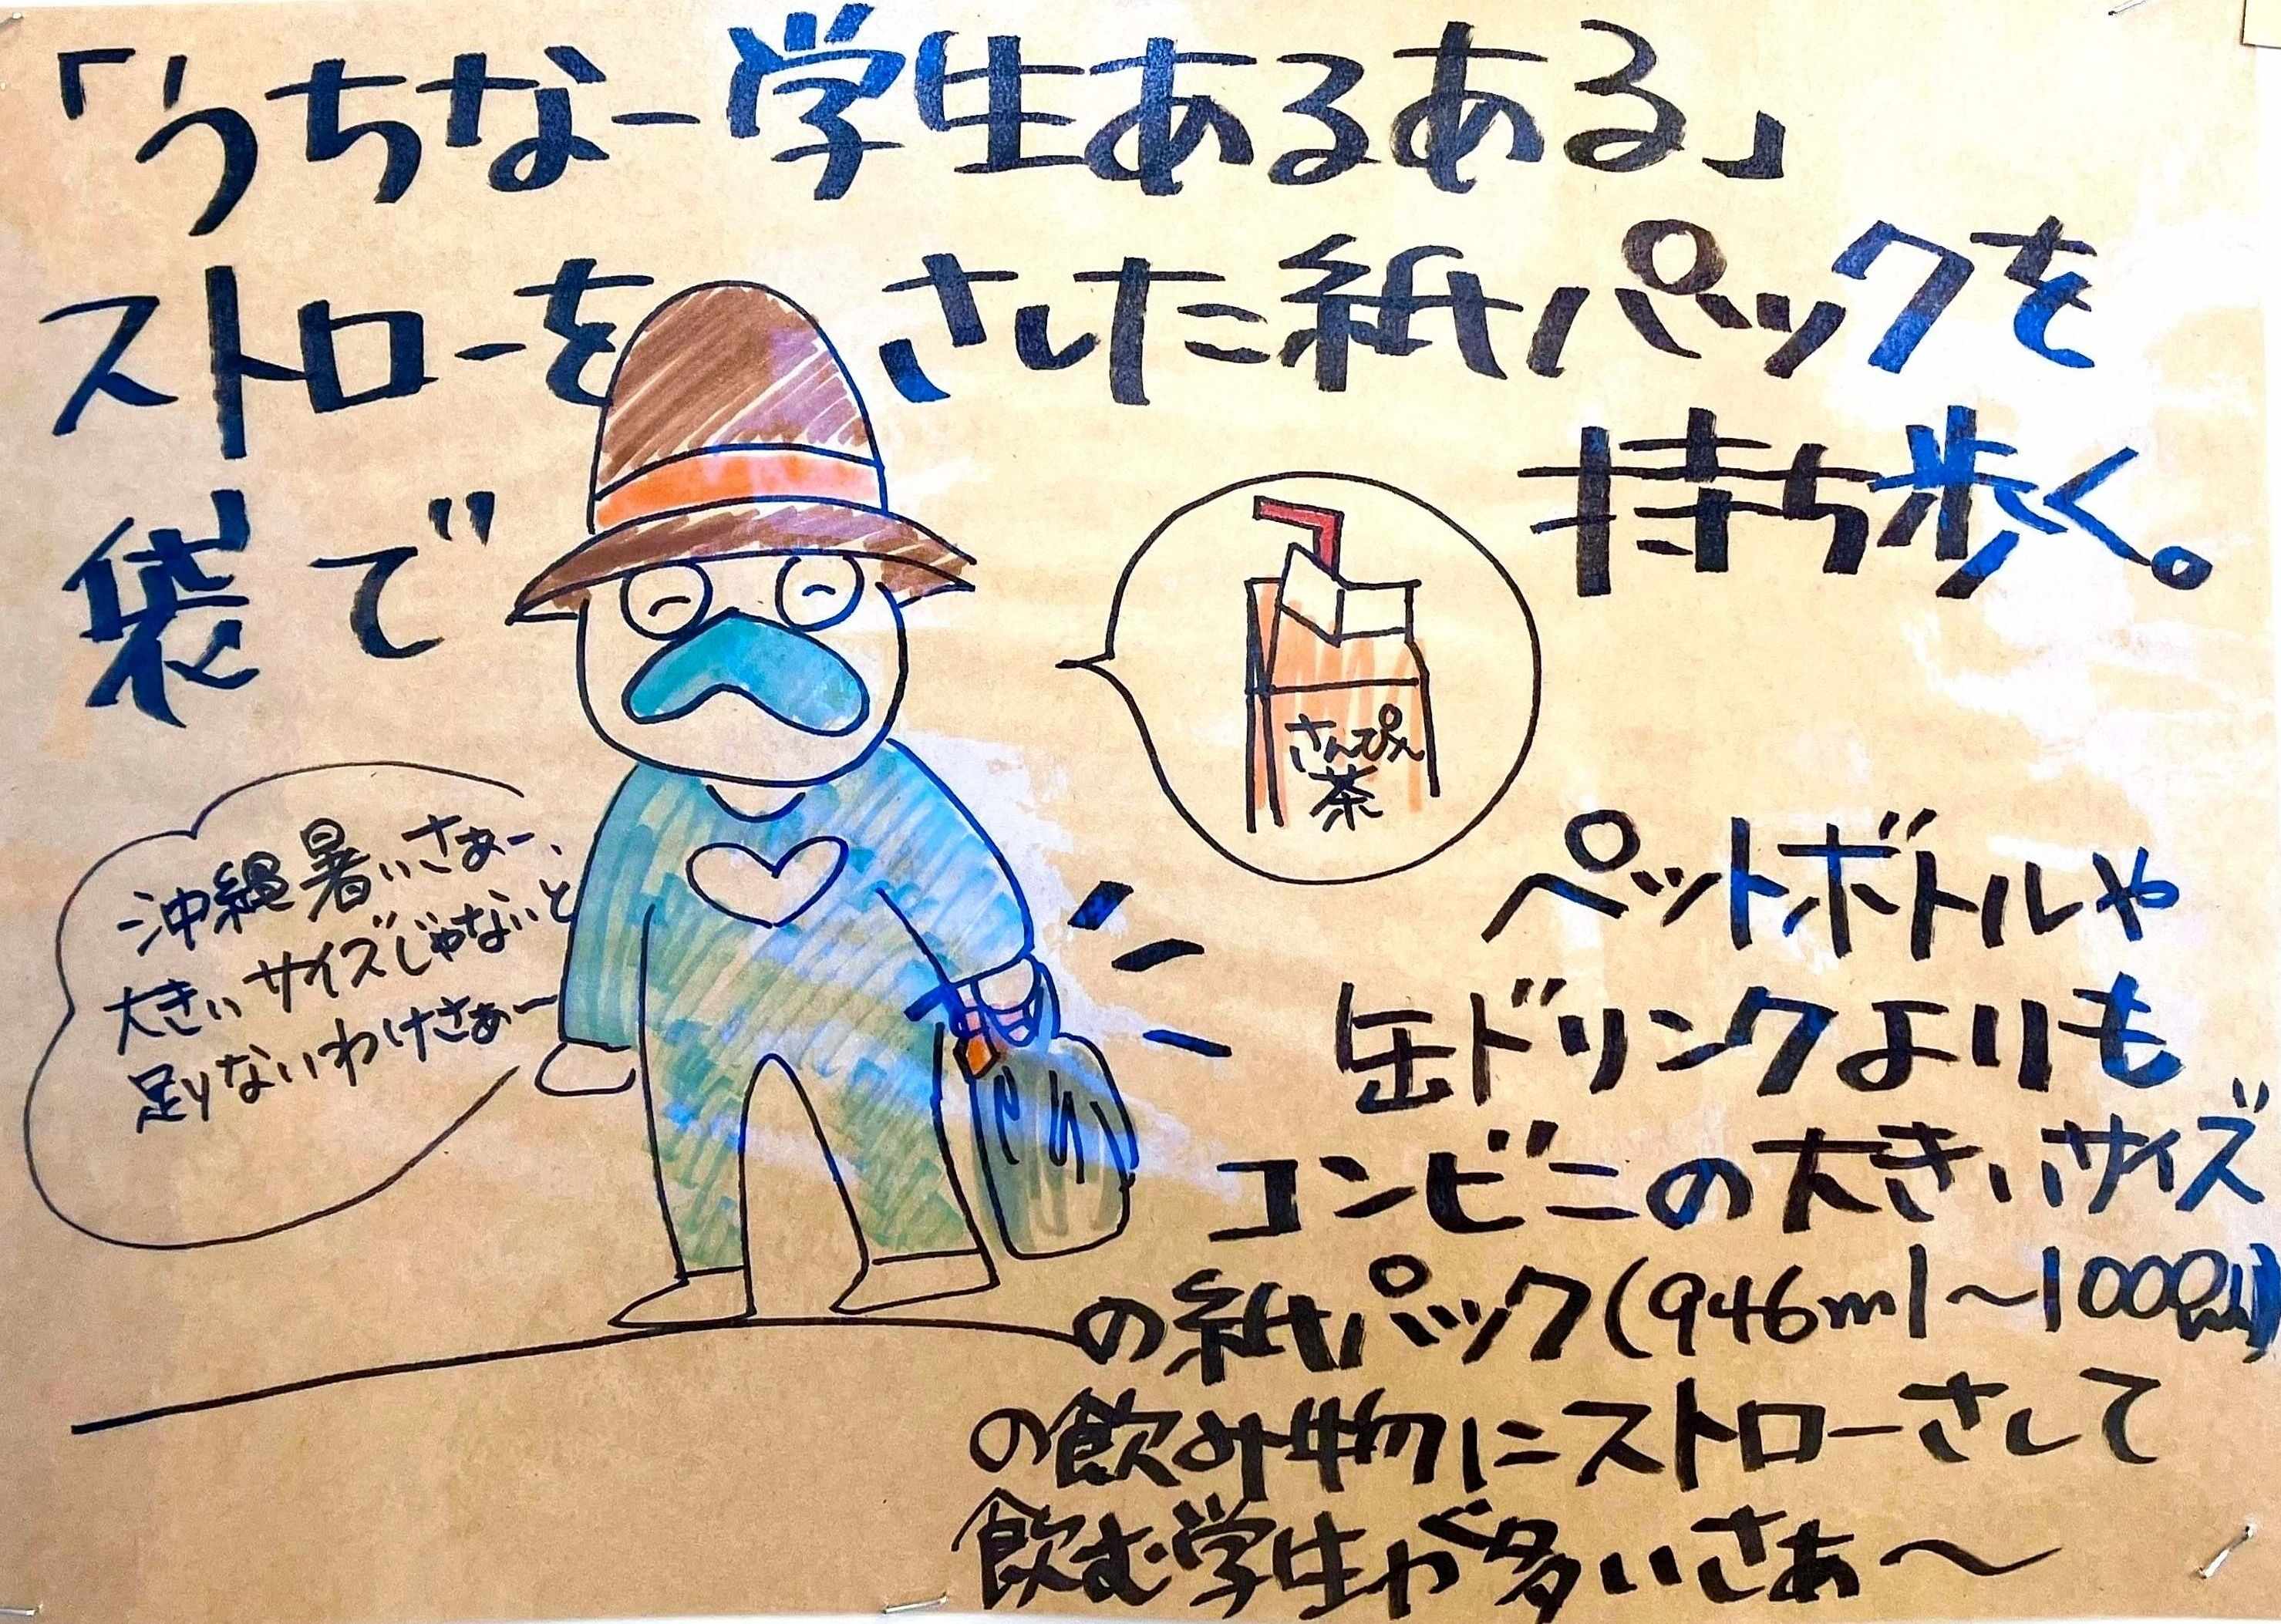 「うちなー学生あるある」
ストローをさした紙パックを
袋で
持ち歩く。
さんぴん
茶
沖縄暑いさぁー、
大きいサイズじゃないと
足りないわけさぁー
ペットボトルや
缶ドリンクよりも
コンビニの大きいサイズ
の紙パック(946ml〜1000ml)
の飲み物にストローさして
飲む学生が多いさぁ〜